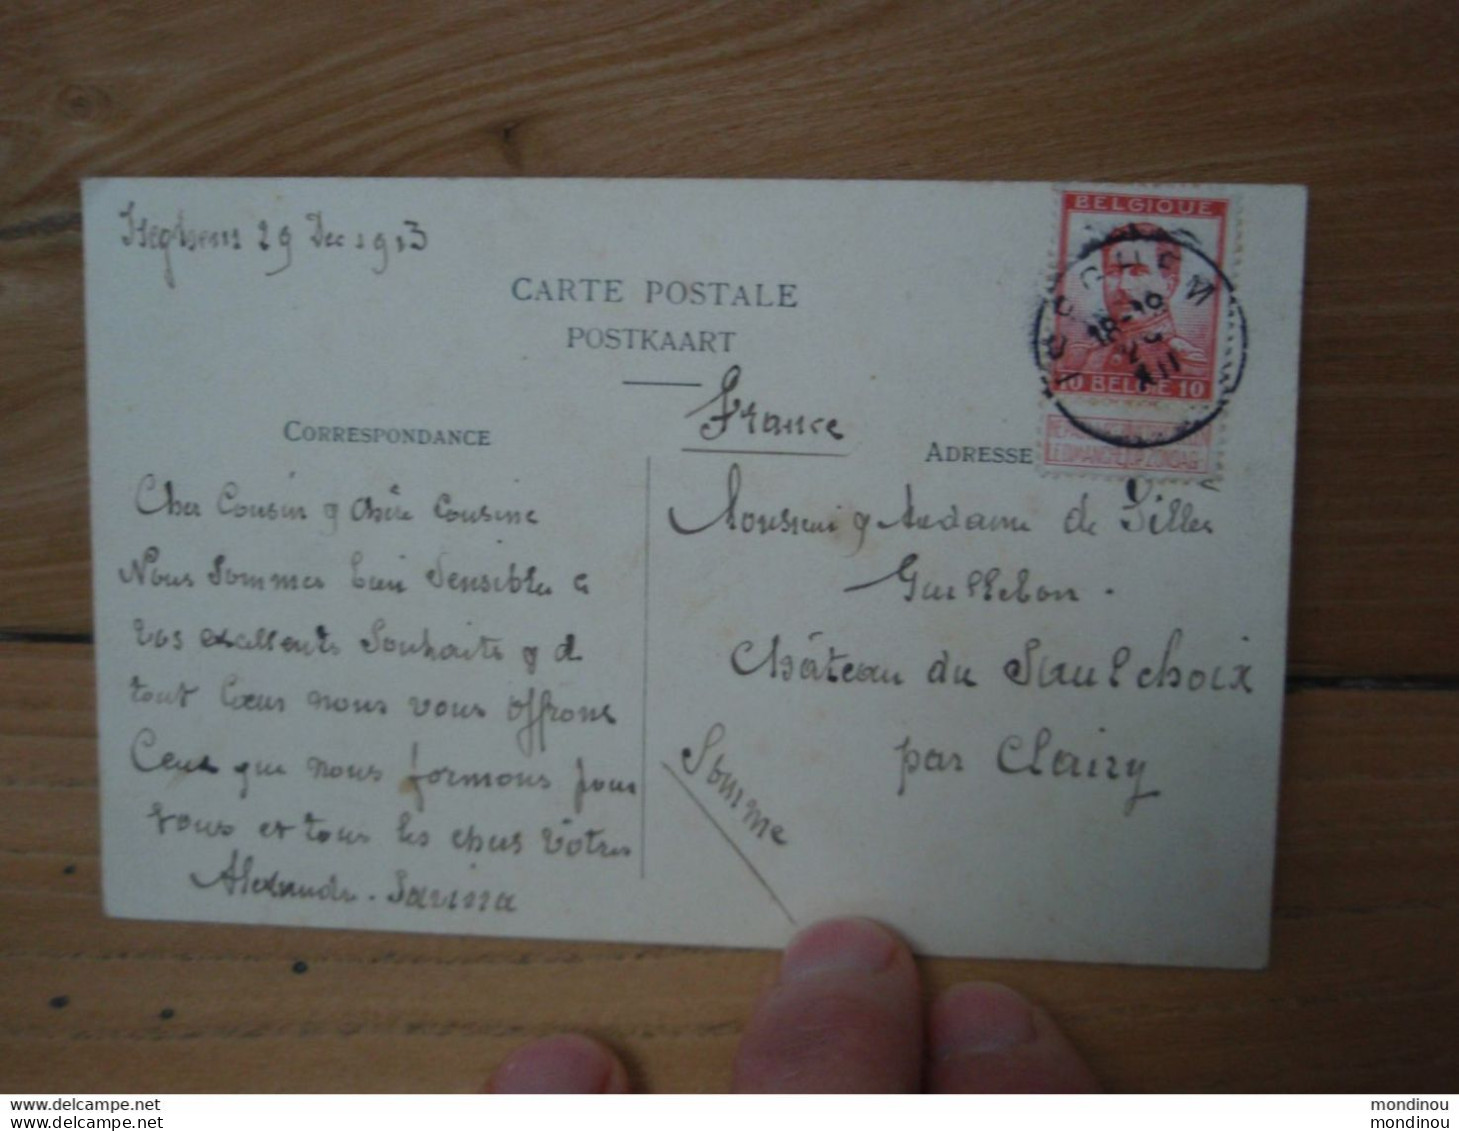 Iseghem 29 Dec 1913
CARTE POSTALE
POSTKAART
CORRESPONDANCE
ADRESSE
BELGIQUE
10 BELGIE 10
ISEGHEM
18-19
29
XII
France
Cher Cousin & Chère Cousine
Nous sommes bien sensibles à
vos excellents Souhaits & d
tout Cœur nous vous offrons
Ceux que nous formons pour
vous et tous les chers Vôtres
Alexandre - Savina
Monsieur & Madame de Gilles
Guillebon.
Château du Saulchoix
par Clairy
Somme
mondinou
mondinou
mondinou
mondinou